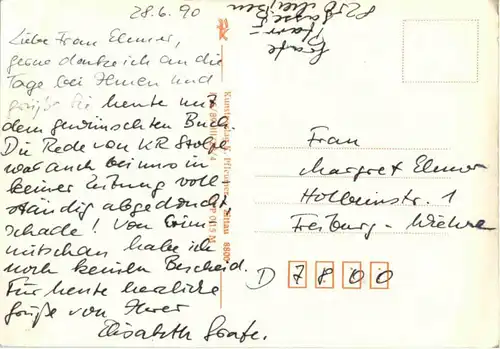 28.6.90
Liebe Frau Elmer,
gerne denke ich an die
Tage bei Ihnen und
grüße Sie heute mit
dem gewünschten Buch.
Die Rede von KR Stolpe
war auch bei uns in
keiner Zeitung voll-
ständig abgedruckt
schade! Von
habe ich
noch keinen Bescheid.
Für heute herzliche
Grüße von Ihrer
Elisabeth Grafe.
Grafe
8250 Meißen
Frau
Margret Elmer
Holbeinstr. 1
Freiburg - Wiehre
D 7800